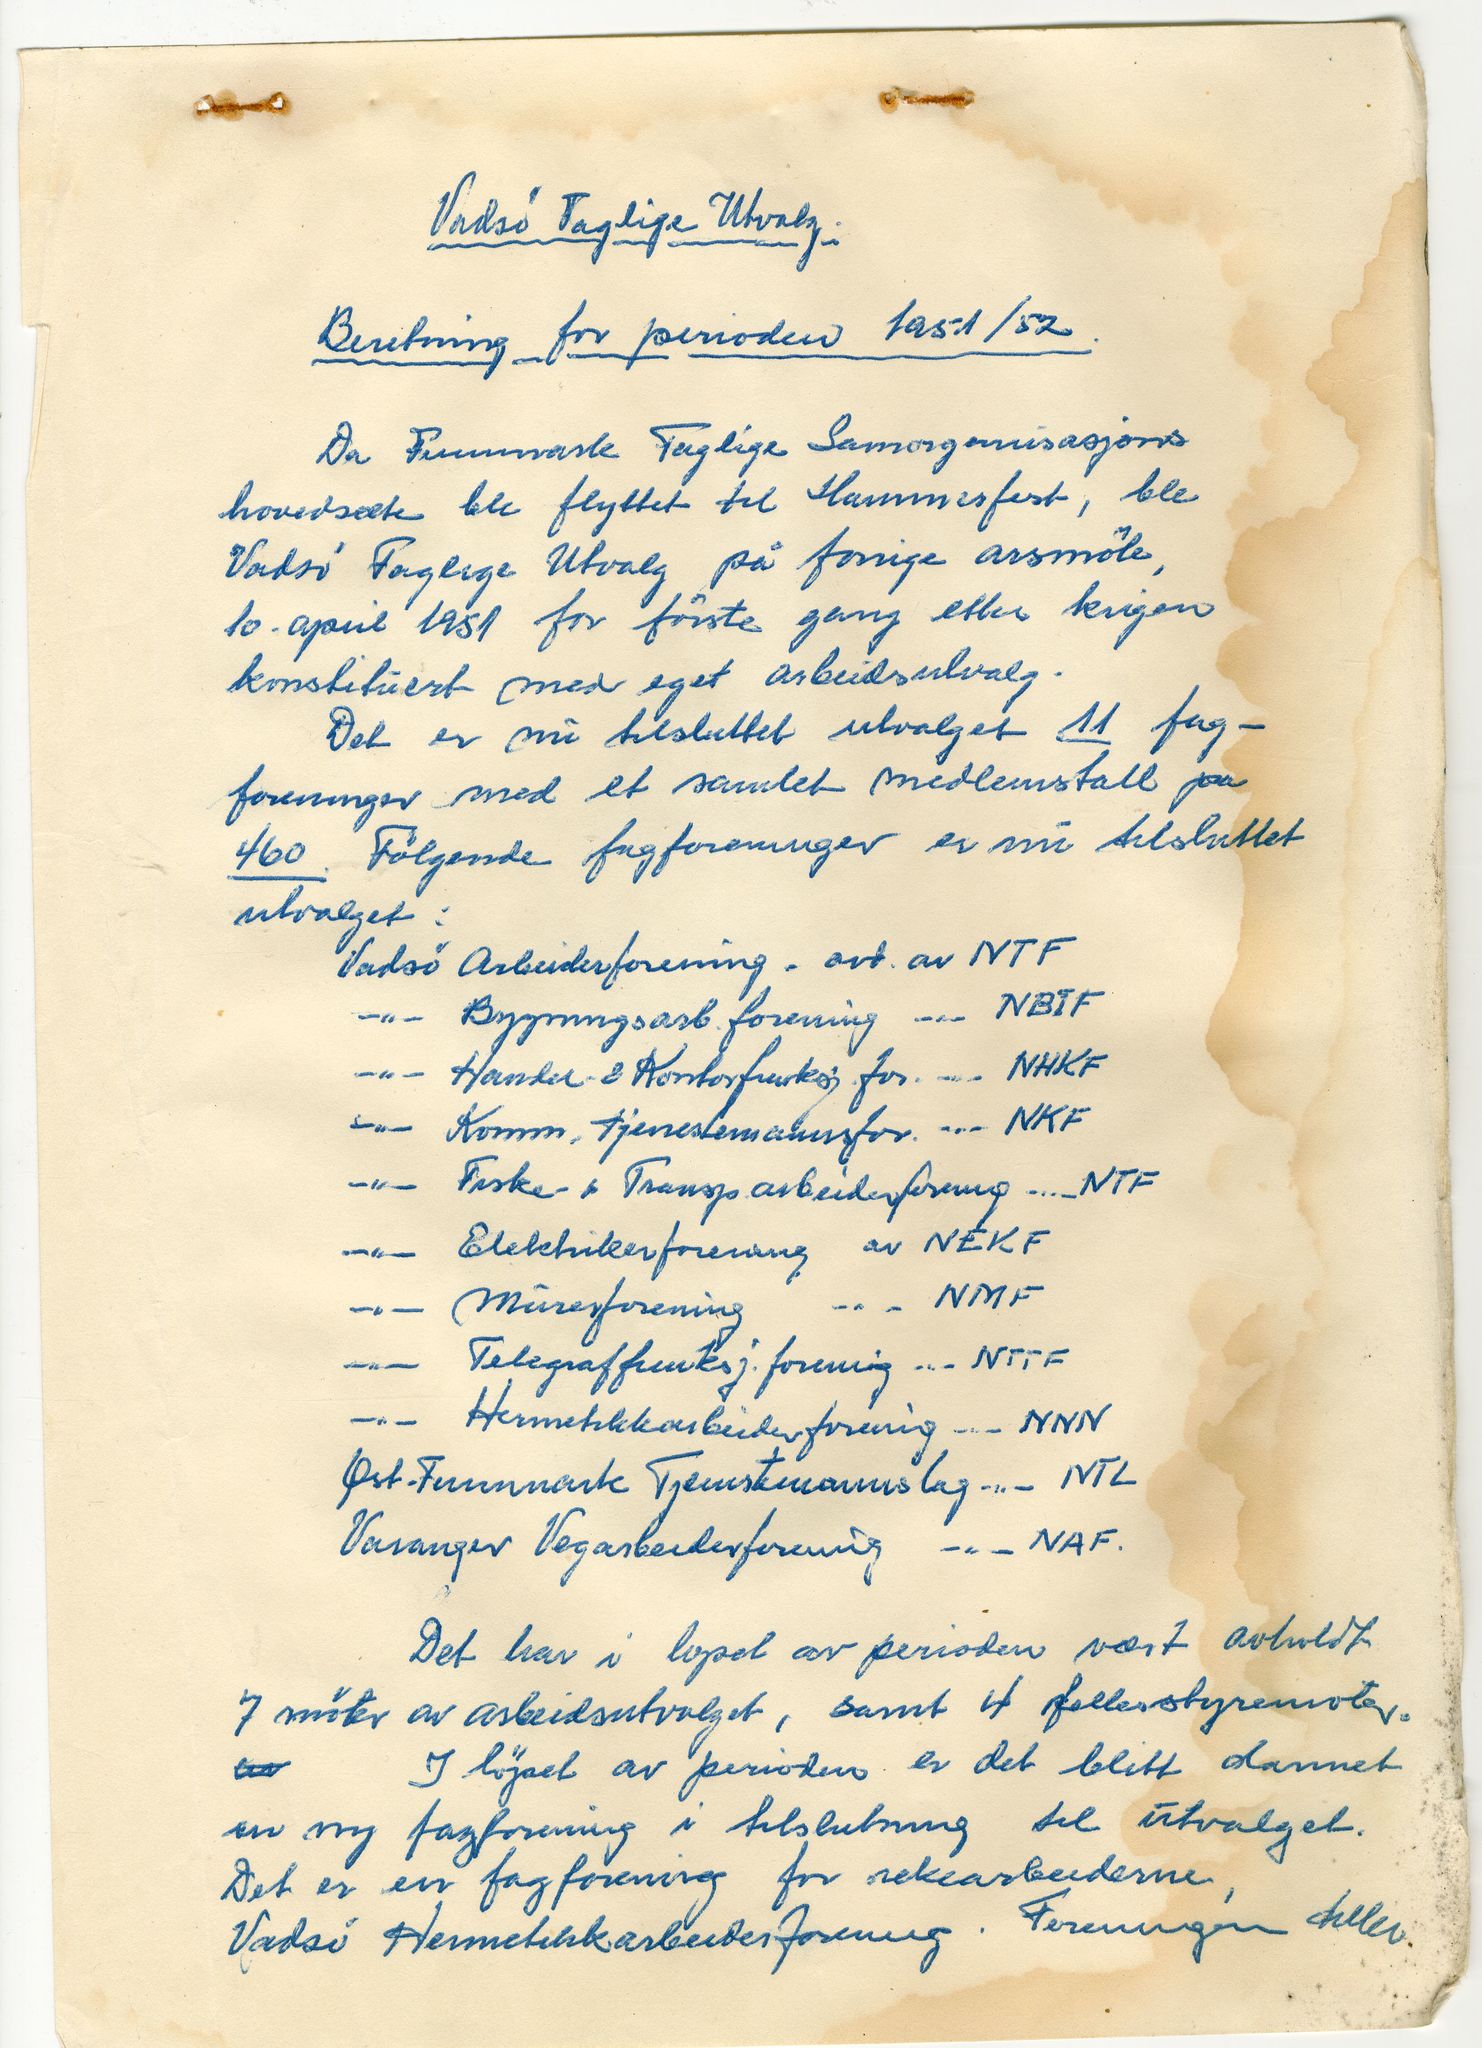 Vadsö Faglige Utvalg.
Beretning for perioden 1951/52.
Da Finnmark Faglige Samorganisasjons
hovedsæte ble flyttet til Hammerfest, ble
Vadsö Faglige Utvalg på forrige årsmöte,
10. april 1951 for förste gang etter krigen
konstituert med eget arbeidsutvalg.
Det er nu tilsluttet utvalget 11 fag-
foreninger med et samlet medlemstall på
460. Fölgende fagforeninger er nu tilsluttet
utvalget:
Vadsö Arbeiderforening - avd. av NTF
-"- Bygningsarb. forening -"- NBIF
-"- Handel- & Kontorfunksj. for. -"- NHKF
-"- Komm. tjenestemannsfor. -"- NKF
-"- Fiske- & Transp. arbeiderforening -"- NTF
-"- Elektrikerforening av NEKF
-"- Murerforening -"- NMF
-"- Telegraffunksj. forening -"- NTTF
-"- Hermetikkarbeiderforening -"- NNN
Øst-Finnmark Tjenestemannslag -"- NTL
Varanger Vegarbeiderforening -"- NAF.
Det har i löpet av perioden vært avholdt
7 möter av arbeidsutvalget, samt 4 fellesstyremöter.
I löpet av perioden er det blitt dannet
en ny fagforening i tilslutning til utvalget.
Det er en fagforening for rekearbeiderne,
Vadsö Hermetikkarbeiderforening. Foreningen teller